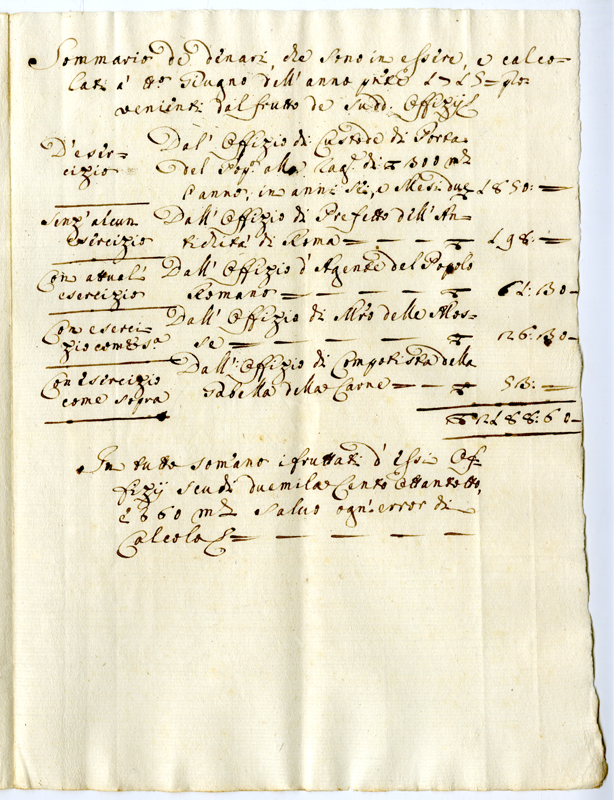 Sommario de dinari, che sono in essere, e calco-
lati à tto Giugno dell' anno pnte 1715 pro-
venienti dal frutto de Sudd. Offizij
D'eser-
cizio
Dal' Offizio di Custode di Porta
del Pop.º alla rag.e di 300 mta
l'anno, in anni sei, e Mesi due 1850:—
Senz' alcun
esercizio
Dall' Offizio di Prefetto dell' An-
tichità di Roma — — 198:—
Con attual'
esercizio
Dall' Offizio d' Agente del Popolo
Romano — — — 61:30—
Con eserci-
zio come sa
Dall' Offizio di Mro delle Mos-
se — — — 26:30—
Con esercizio
come sopra
Dall' Offizio di Computista della
Gabella della Carne — 53:—
2188:60—
In tutto somano i fruttati d' Essi Of-
fizij scudi duemila Cento Ottantotto,
e 60 mta salvo ogn' error di
Calcolo &— — — — —